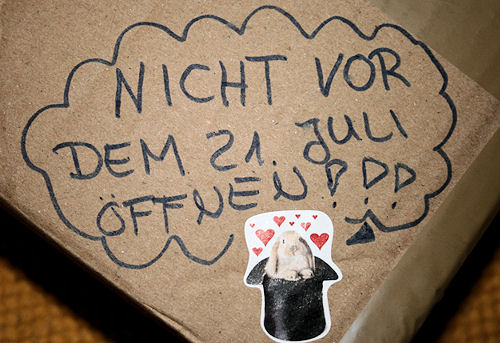 NICHT VOR
DEM 21. JULI
ÖFFNEN!!!